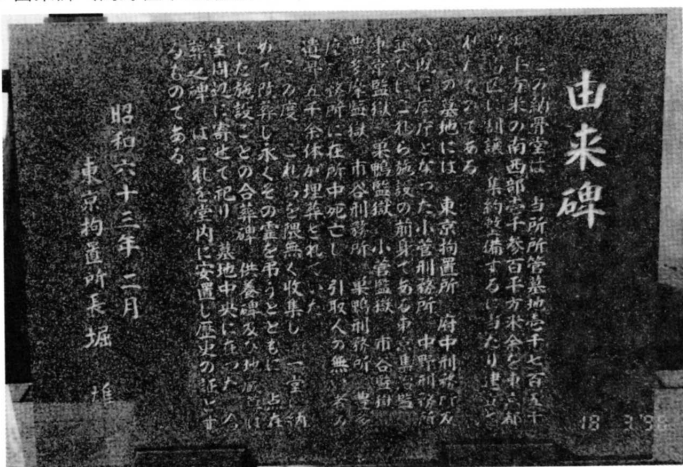 由来碑
この納骨堂は 当所所管墓地壱千七百五十
平方米の南西部壱千参百平方米余を東京都
に割譲 集約整備するに当たり建立さ
れたものである
この墓地には 東京拘置所 府中刑務所及
び既に廃庁となった小菅刑務所 中野刑務所
並びにこれら施設の前身である 集治監
東京監獄 巣鴨監獄 小菅監獄 市谷監獄
豊多摩監獄 市谷刑務所 巣鴨刑務所 豊多
摩刑務所に在所中死亡し 引取人の無い者の
遺骨五千余体が埋葬されていた
この度 これらを隈無く収集し 一堂に納
めて改葬し永くその霊を弔うとともに 点在
した施設ごとの合葬碑 供養碑及び地蔵尊は
堂周辺に寄せて祀り 墓地中央に在った 合
葬之碑 はこれを堂内に安置し歴史の証とす
るものである
昭和六十三年二月
東京拘置所長 堀 雄
18 3.'96